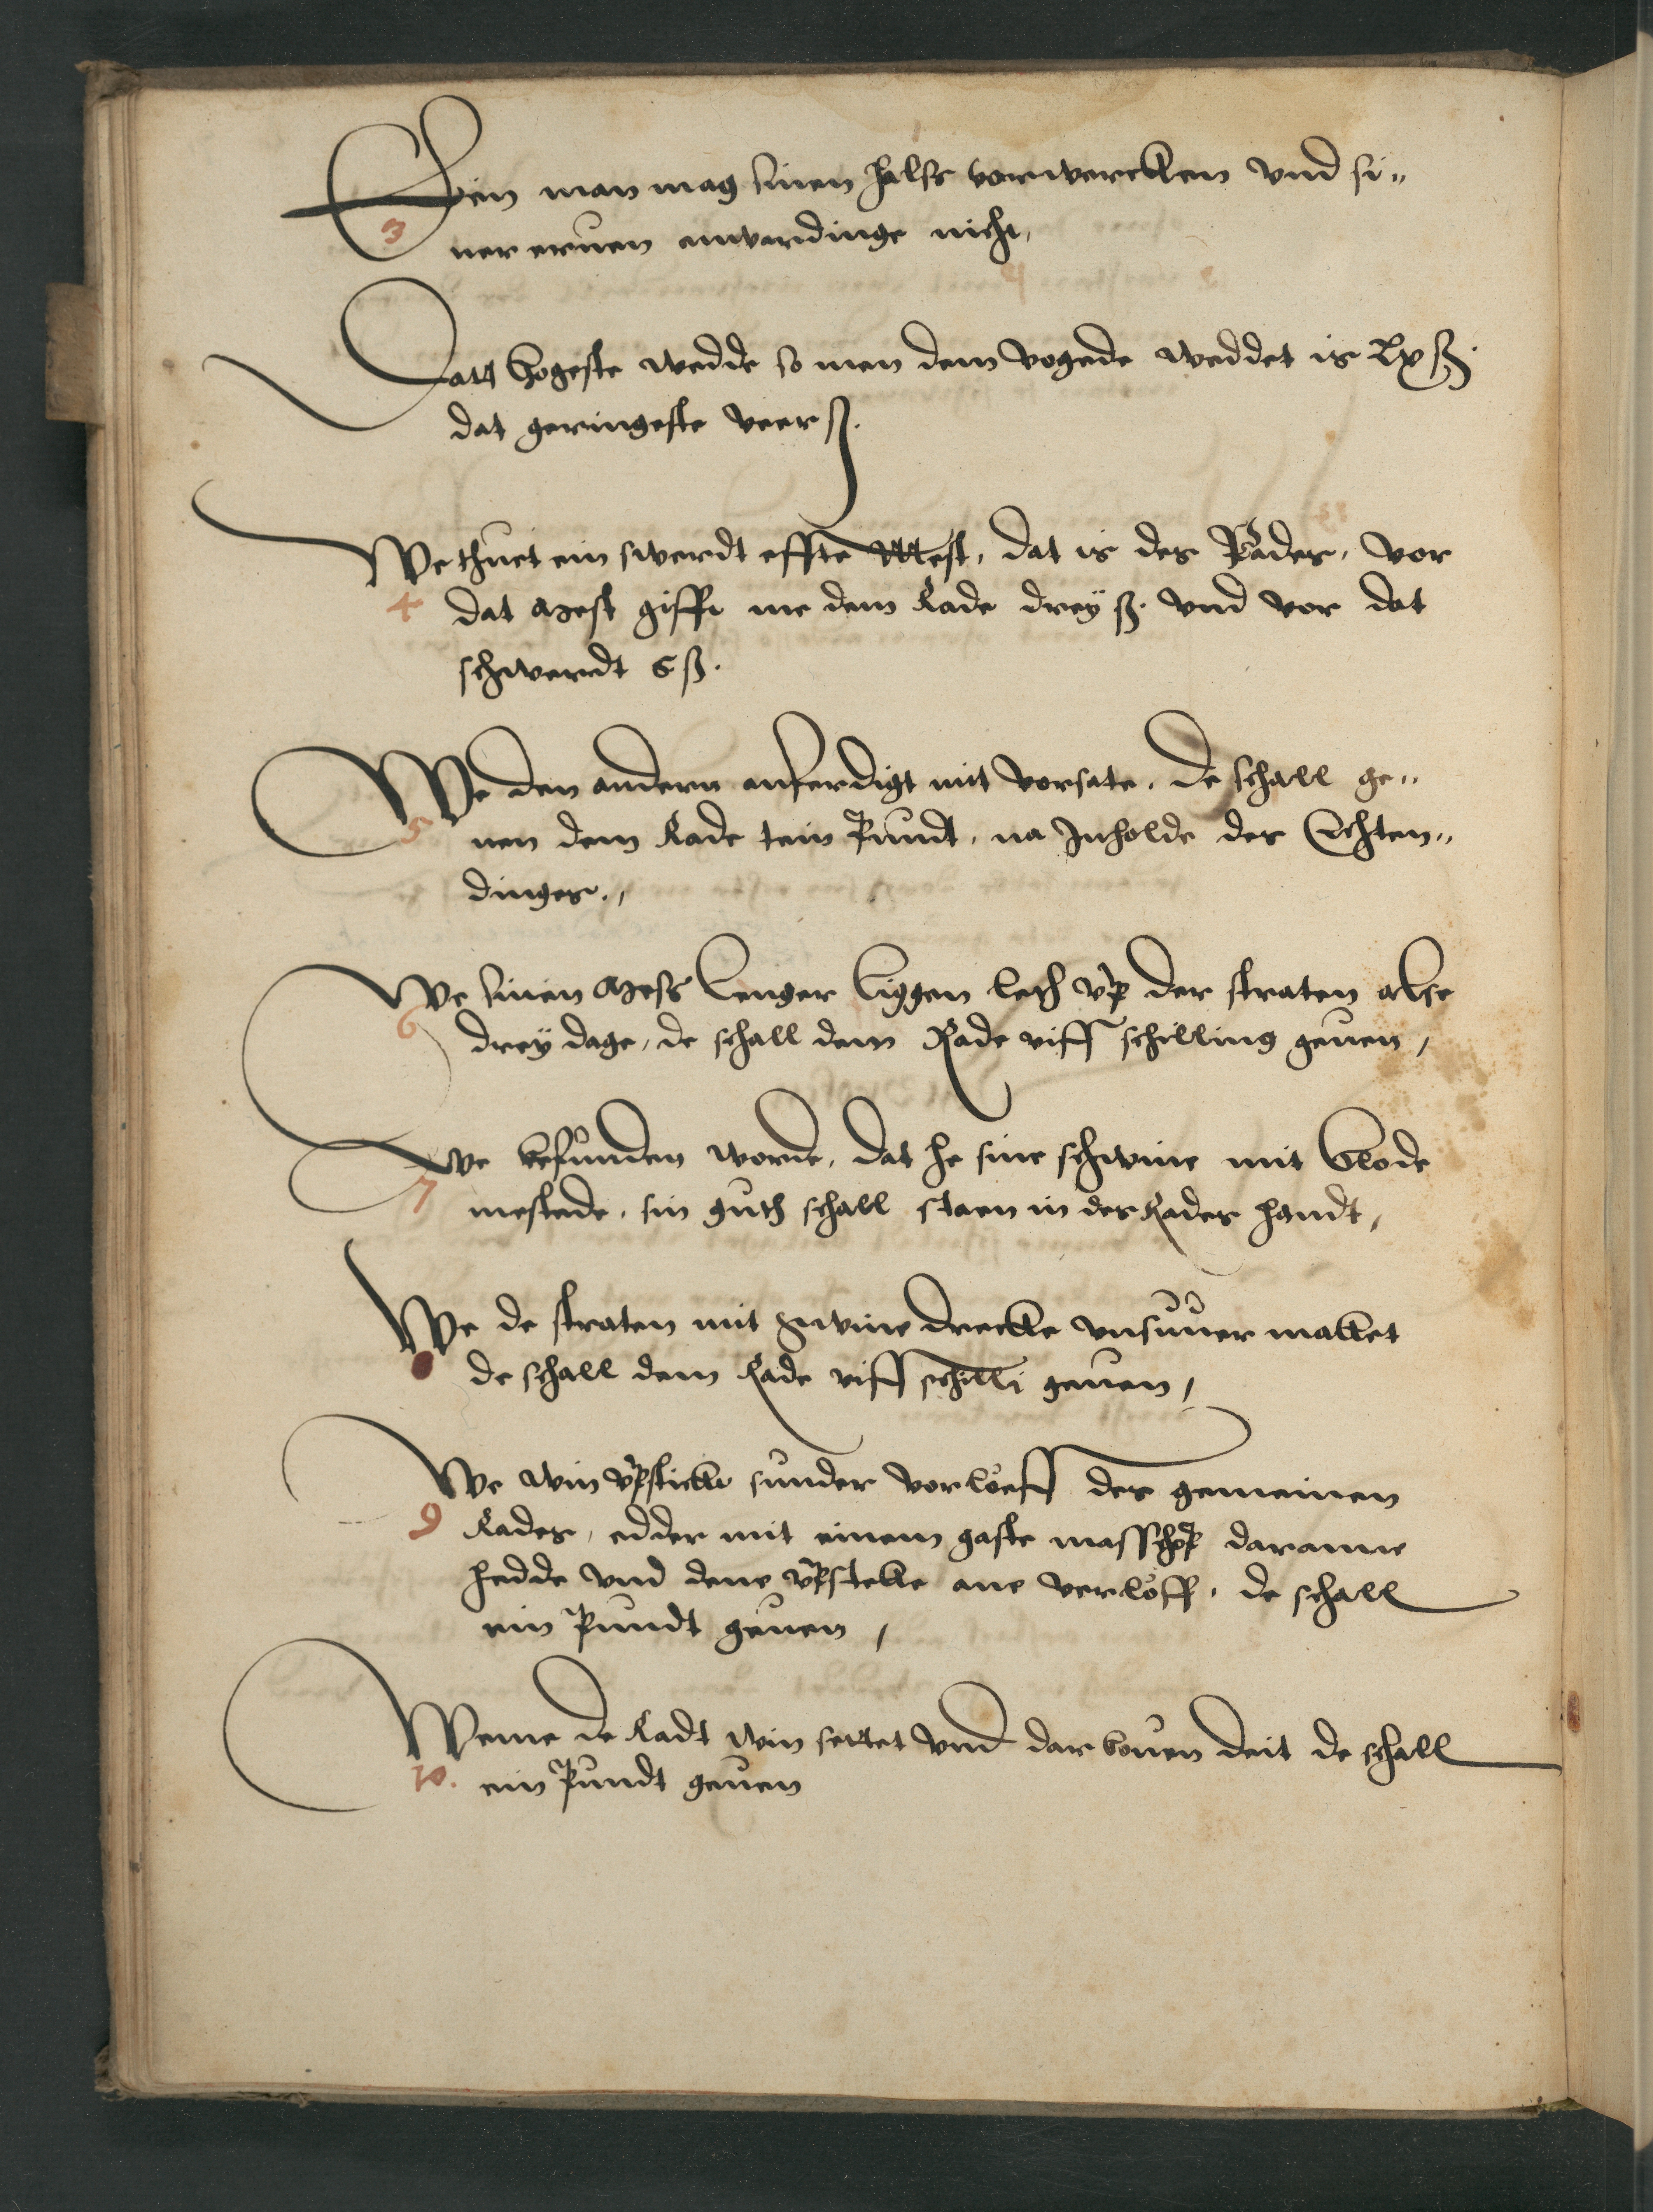 Ein man mag sinen halss vorwercken vnd si„
3 ner eruen anwardinge nicht,
Dath hogeste wedde so men dem vogede weddet is Lx ß.
dat geringeste veer ß.
We thuet ein swerdt effte Mest, dat is des Rades, vor
4 dat Mest gifft me dem Rade drey ß. vnd vor dat
schwerdt 5 ß.
We den andern anferdigt mit vorsate, de schall ge„
5 uen dem Rade tein Pundt, na Inholde des Echten„
dinges.,
We sinen Mess lenger liggen leth vp der straten alse
6 drey dage, de schall dem Rade viff schilling geuen,
We befunden worde, dat he sine schwine mit blode
7 mestede, sin guth schall staen in des Rades handt,
We de straten mit swine drecke vnsuuer maket
de schall dem Rade viff schilli geuen,
We win vpsticke sunder vorloeff des gemeinen
9 Rades, edder mit einem gaste masschop daranne
hedde vnd dene vpsteke ane verloff, de schall
ein Pundt geuen,
Weme de Radt win settet vnd dar bouen deit de schall
10. ein Pundt geuen